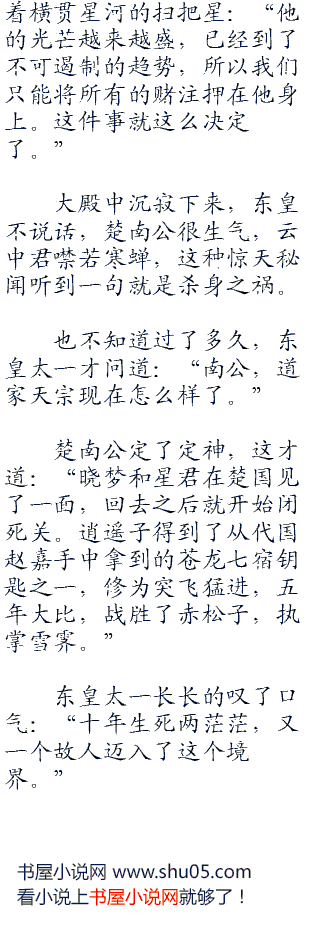 着横贯星河的扫把星：“他
的光芒越来越盛，已经到了
不可遏制的趋势，所以我们
只能将所有的赌注押在他身
上。这件事就这么决定
了。”
大殿中沉寂下来，东皇
不说话，楚南公很生气，云
中君噤若寒蝉，这种惊天秘
闻听到一句就是杀身之祸。
也不知道过了多久，东
皇太一才问道：“南公，道
家天宗现在怎么样了。”
楚南公定了定神，这才
道：“晓梦和星君在楚国见
了一面，回去之后就开始闭
死关。逍遥子得到了从代国
赵嘉手中拿到的苍龙七宿钥
匙之一，修为突飞猛进，五
年大比，战胜了赤松子，执
掌雪霁。”
东皇太一长长的叹了口
气：“十年生死两茫茫，又
一个故人迈入了这个境
界。”
书屋小说网 www.shu05.com
看小说上书屋小说网就够了！